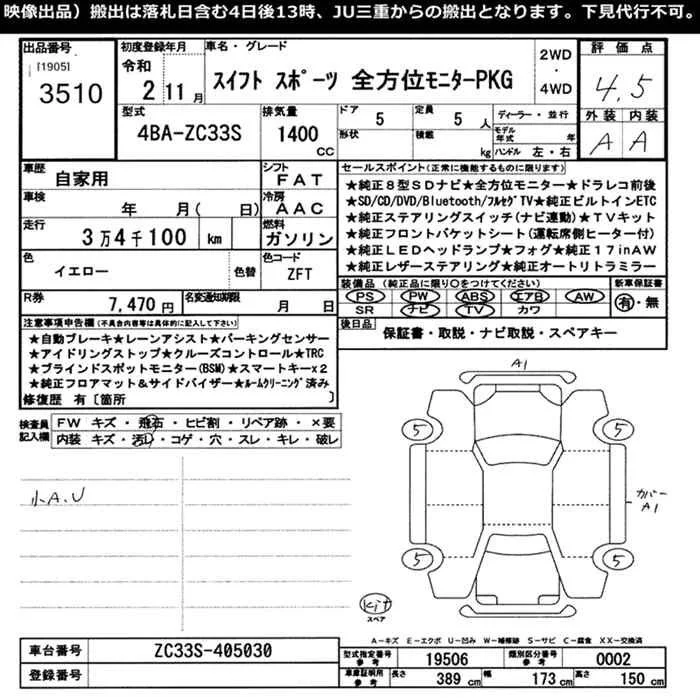 映像出品）搬出は落札日含む4日後13時、JU三重からの搬出となります。下見代行不可。
出品番号 初度登録年月 車名・グレード 2WD・4WD 評価点
[1905] 3510 令和 2 11月 スイフト スポーツ 全方位モニターPKG 4.5
型式 排気量 ドア 定員 ディーラー・並行 外装 内装
4BA-ZC33S 1400 CC 5 5 人 A A
形状 積載 kg モデル年式 年
ハンドル 左・右
車歴 シフト セールスポイント(正常に機能するものに限ります)
自家用 FAT ★純正8型SDナビ★全方位モニター★ドラレコ前後
車検 冷房 ★SD/CD/DVD/Bluetooth/フルセグTV★純正ビルトインETC
年 月( 日) AAC ★純正ステアリングスイッチ(ナビ連動)★TVキット
走行 燃料 ★純正フロントバケットシート(運転席側ヒーター付)
3万4千100 km ガソリン ★純正LEDヘッドランプ★フォグ★純正17inAW
色 色コード ★純正レザーステアリング★純正オートリトラミラー
イエロー 色替 ZFT 装備品(純正品に限り○をつけてください) 新車保証書
R券 名変通知期限 PS PW ABS エアB AW 有・無
7,470円 月 日 SR ナビ TV カワ
注意事項申告欄(不具合内容等は具体的に記入して下さい) 後日品 保証書・取説・ナビ取説・スペアキー
★自動ブレーキ★レーンアシスト★パーキングセンサー
★アイドリングストップ★クルーズコントロール★TRC
★ブラインドスポットモニター(BSM)★スマートキーx2
★純正フロアマット&サイドバイザー★ルームクリーニング済み
修復歴 有〔箇所 〕
検査員記入欄 FW キズ・飛石・ヒビ割・リペア跡・×要
内装 キズ・汚レ・コゲ・穴・スレ・キレ・破レ
A1
5 5
小A.U
カバー A1
5 5
Kit
スペア
A-キズ E-エクボ U-凹み W-補修跡 S-サビ C-腐食 XX-交換済
車台番号 ZC33S-405030 型式指定番号 参考 19506 類別区分番号 参考 0002
登録番号 車庫証明用 参考 長さ 389 cm 幅 173 cm 高さ 150 cm